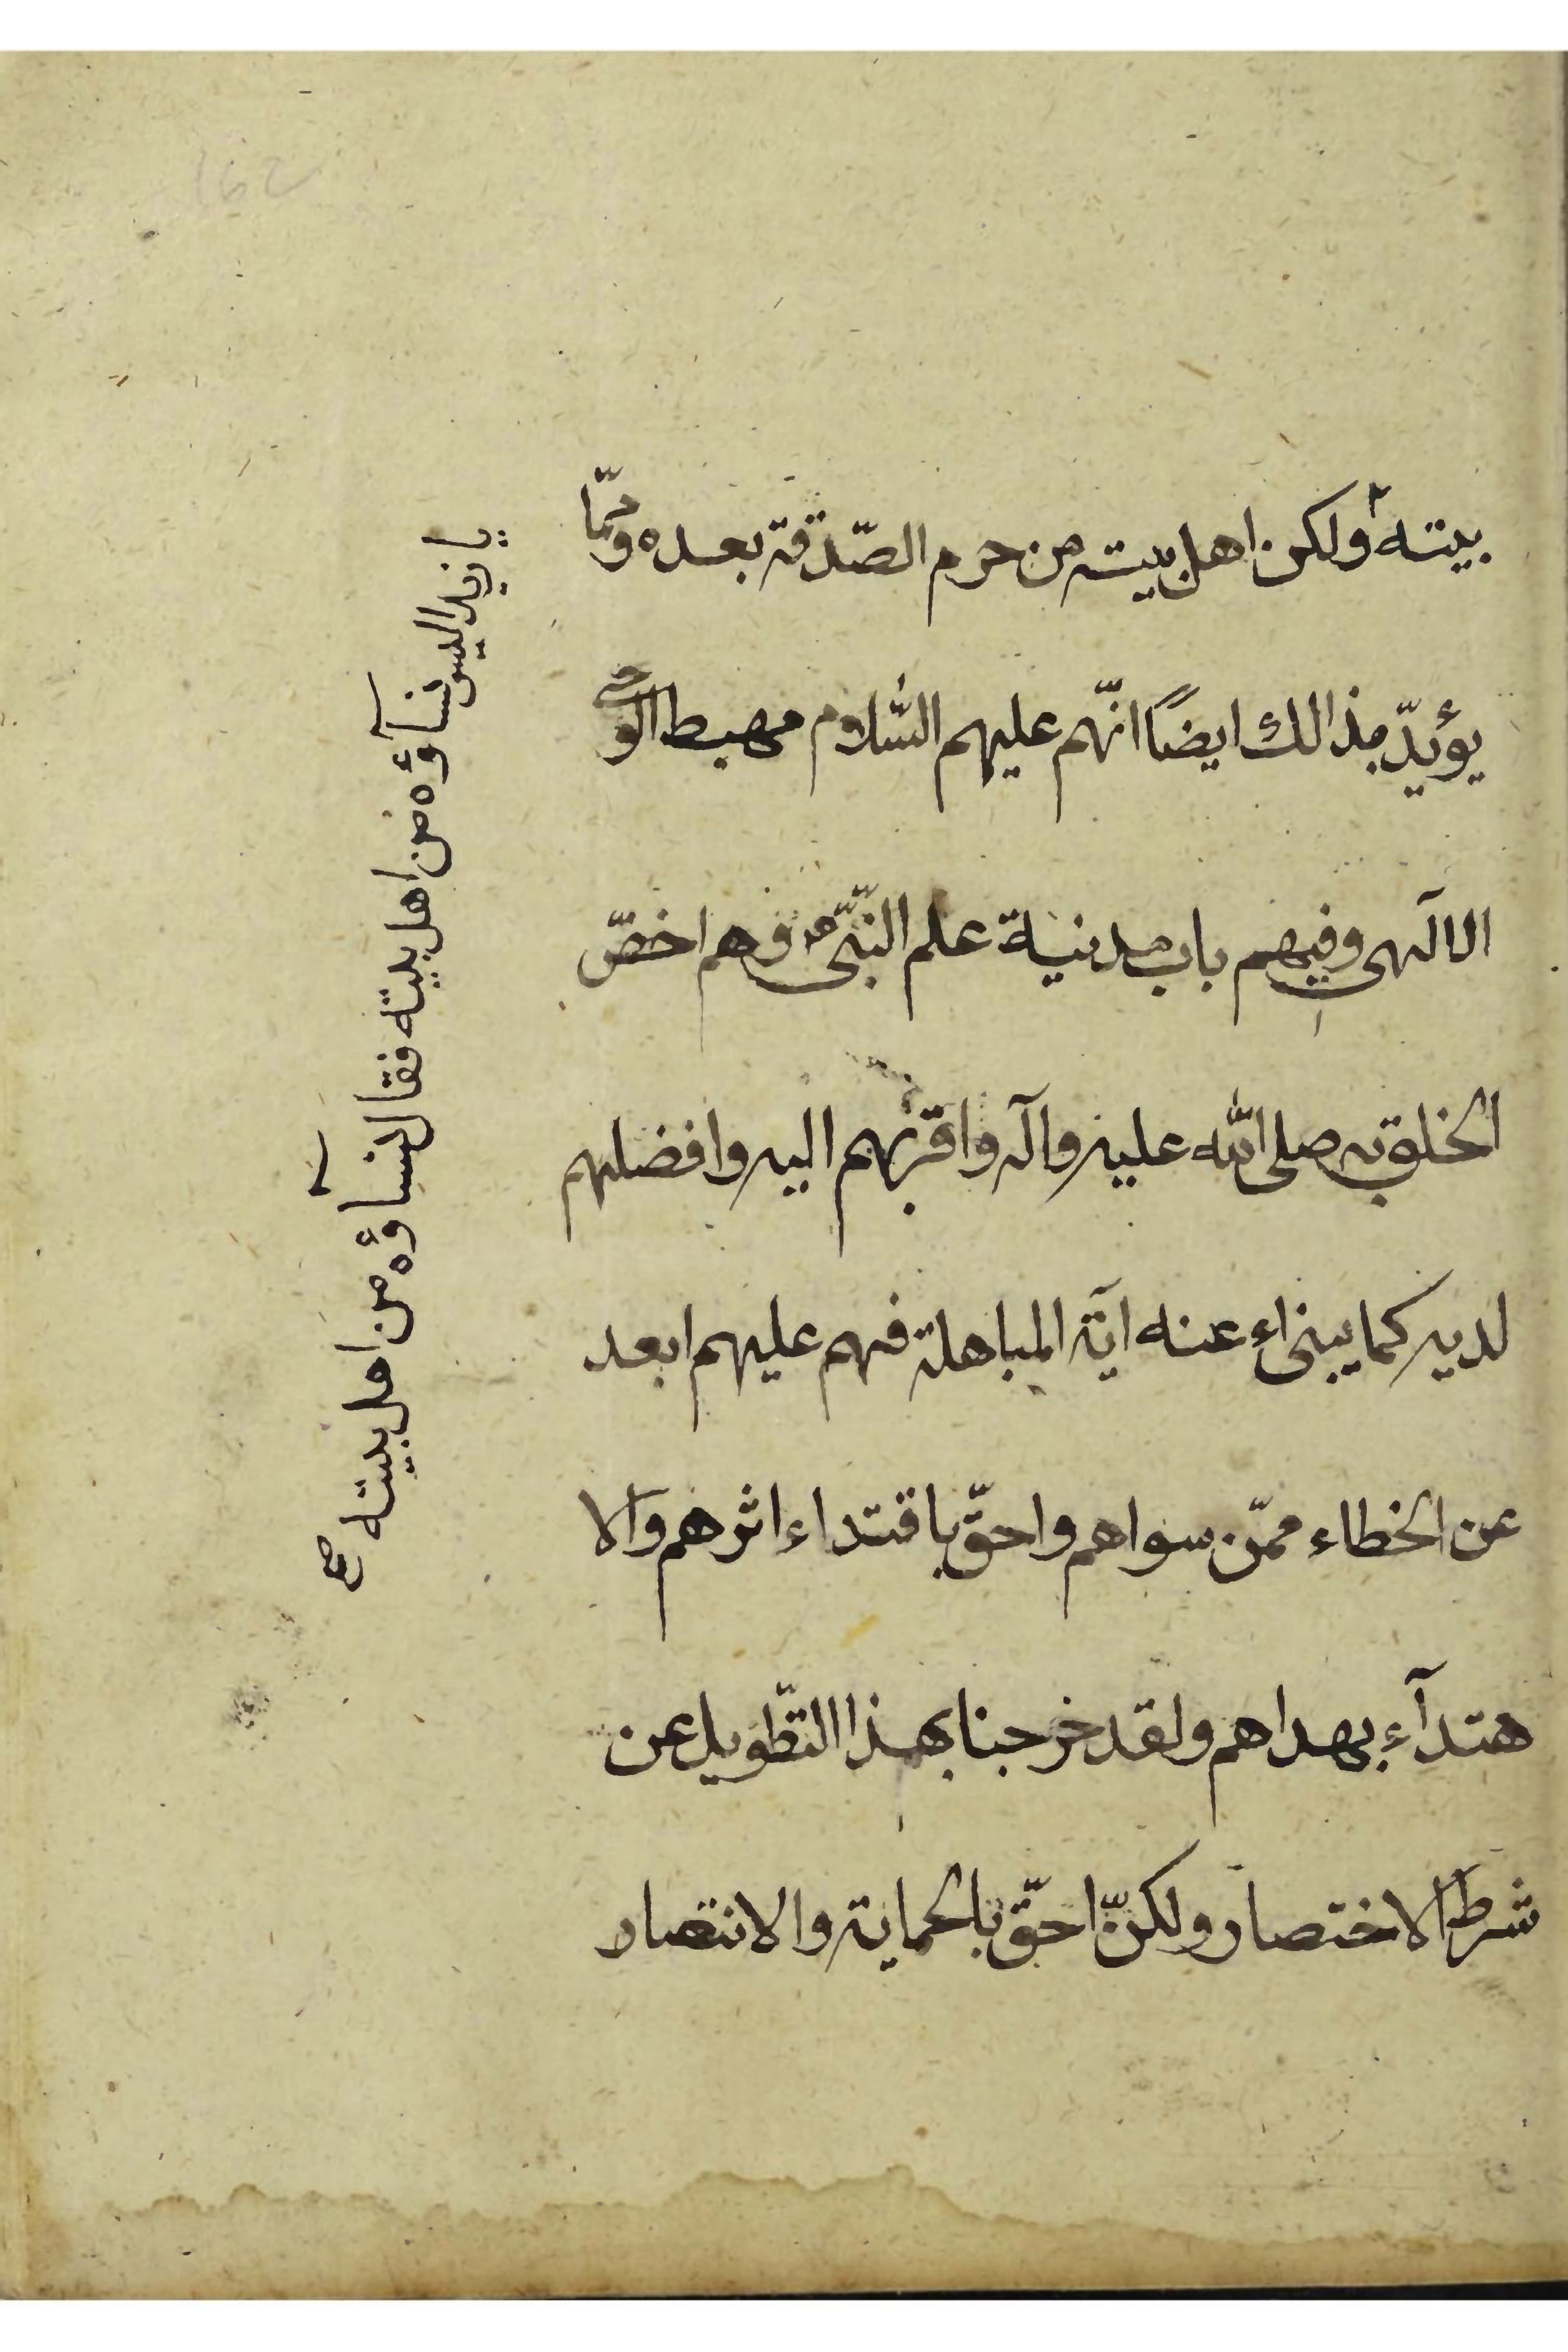 بيته ولكن اهل بيته من حرم الصّدقة بعده وممّا
يؤيدّ مذالك ايضًا انّهم عليهم السّلام مهبط الوحي
الالٓهى وفيهم باب مدينة علم النّبّى ص وهم اخصّ
الخلق به صلى الله عليه وآله واقربهم اليه وافضلهم
لديه كما ينبىٔاء عنه آية المباهلة فهم عليهم ابعد
عن الخطاء ممّن سواهم واحقّ باقتداء اثرهم والا
هتدآء بهداهم ولقد خرجنا بهذا التطّويل عن
شرط الاختصار ولكنّ احقّ بالحماية والانتصار
يا زيد اليس نسآؤه من اهل بيته فقال نسآؤه من اهل بيته صح